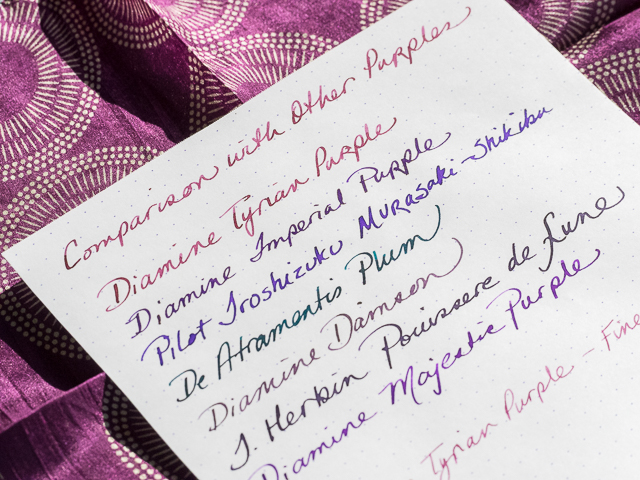 Comparison with Other Purples
Diamine Tyrian Purple
Diamine Imperial Purple
Pilot Iroshizuku Murasaki-Shikibu
De Atramentis Plum
Diamine Damson
J. Herbin Pouissere de Lune
Diamine Majestic Purple
Tyrian Purple - Fine